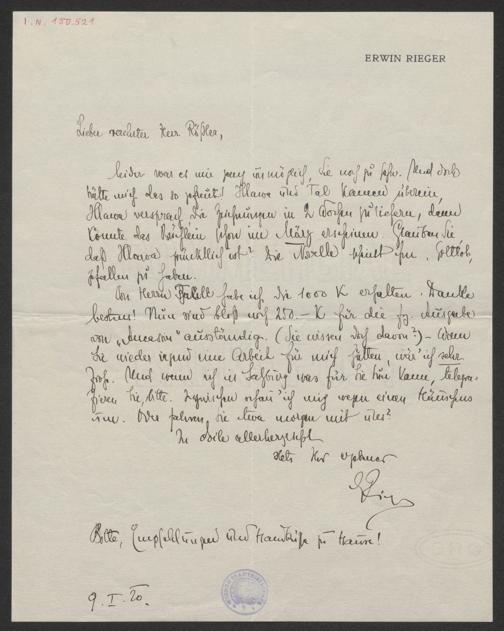 I.N. 150.521
ERWIN RIEGER
Lieber verehrter Herr Rößler,
leider war es mir ganz unmöglich, Sie noch zu sehn. Und doch
hätte mich das so gefreut! Hlawa und Tal kamen überein,
Hlawa versprach die Zeichnungen in 2 Wochen zu liefern, dann
könnte das Büchlein schon im März erscheinen. Glauben Sie
daß Hlawa pünktlich ist? Die Novelle scheint ihm, Gottlob,
gefallen zu haben.
Von Herrn habe ich die 1000 K erhalten. Danke
bestens! Nun sind bloß noch 250.- K für die frz. Ausgabe
von „ " ausständig. (Sie wissen doch davon?) - Wenn
Sie wieder irgend eine Arbeit für mich hätten, wär' ich sehr
froh. Und wenn ich in Salzburg was für Sie tun kann, telegra-
fieren Sie, bitte. Inzwischen schau' ich mich wegen eines Häuschens
um. Oder fahren Sie etwa morgen mit uns?
In Eile allerherzlichst
stets Ihr ergebener
E Rieger
Bitte, Empfehlungen und Handküsse zu Hause!
9. I. 20.